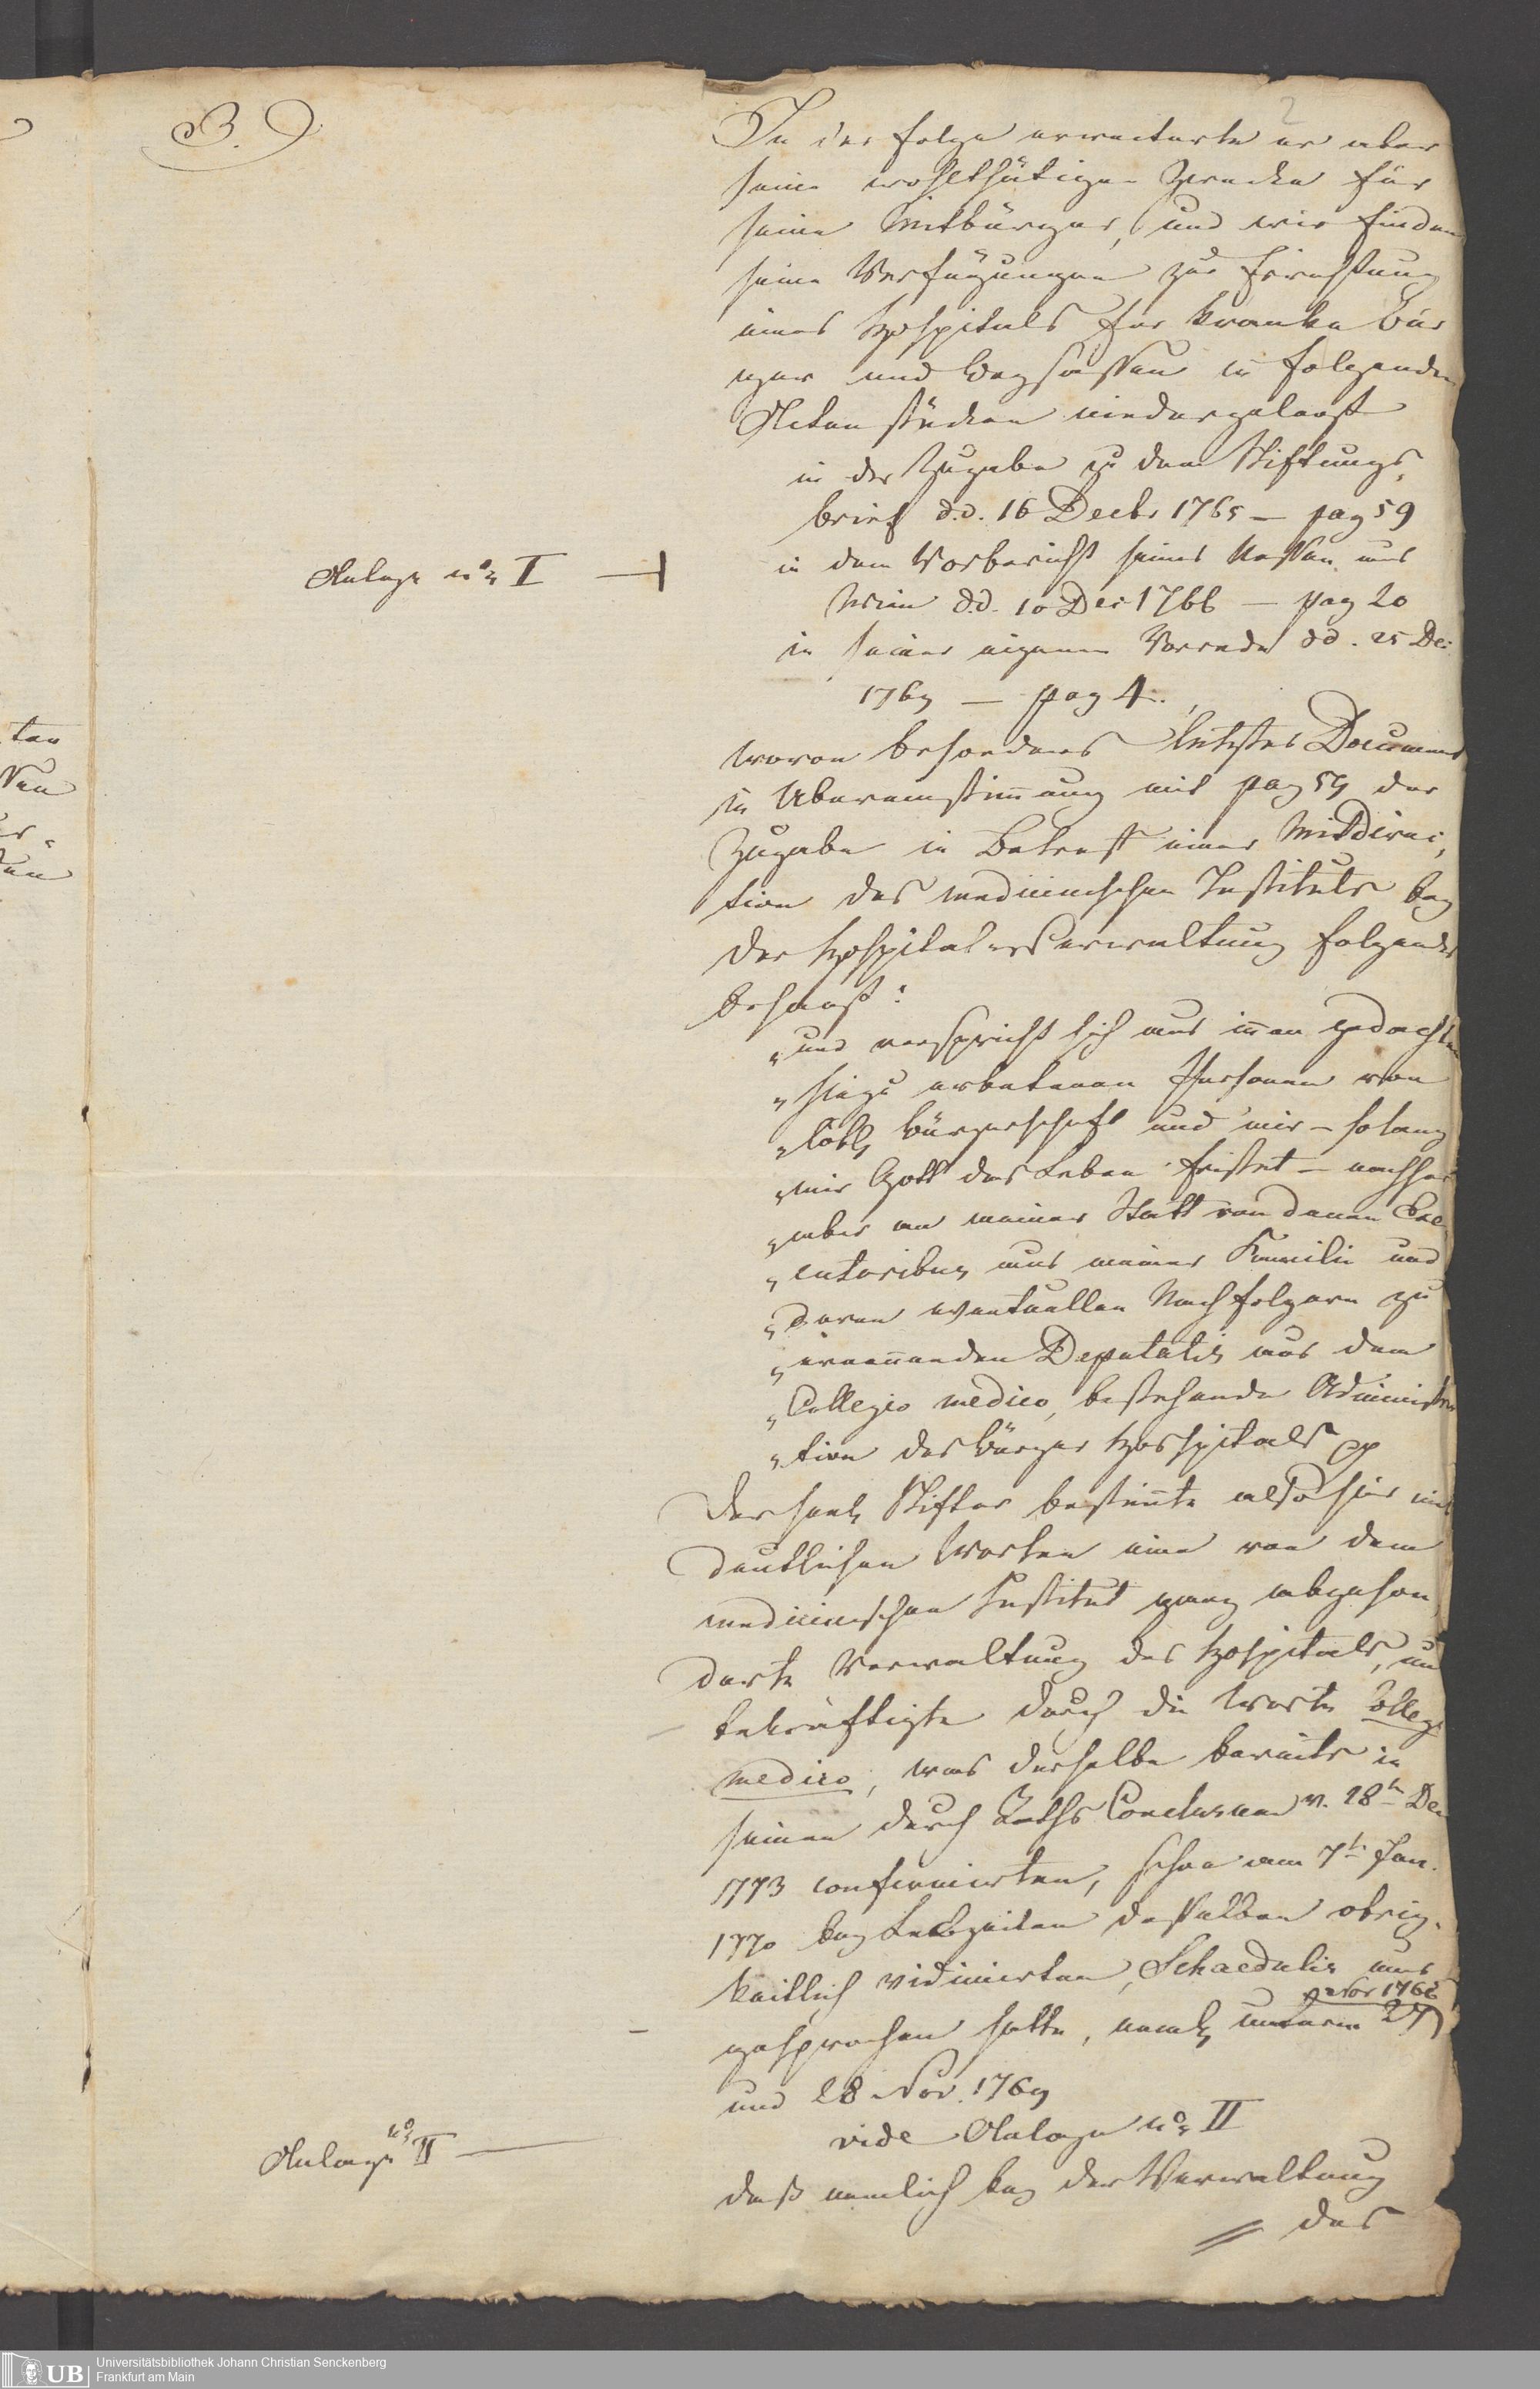 B.
2
In der Folge erweiterte er aber
seine wohlthätigen Zwecke für
seine Mitbürger, und wir finden
seine Verfügungen zur Errichtung
eines Hospitals für kranke Bür
ger und Beysassen in folgenden
Actenstücken niedergelegt
in der Zugabe zu dem Stiftungs-
brief d.d. 16 Decbr 1765 — pag 59
Anlage No I
in dem Vorbericht seines Neffen
d.d. 10 Dec 1766 — pag 20
in seiner eigenen Vorrede dd. 25 Dec
1769 — pag 4.
wovon besonders letztes Document
in Übereinstimmung mit pag 59 der
Zugabe in Betreff einer Mitdirec-
tion des medicinischen Instituts bey
der Hospitals Verwaltung folgendes
besagt:
„und verspricht sich aus gedachten
„hiezu erbetenen Personen von
„löbl Bürgerschaft und mir – solang
„mir Gott das Leben fristet – nachher
„aber an meiner Statt von denen Exe
„cutoribus aus meiner Familie und
„deren eventuellen Nachfolgern zu
„ernennenden Deputatis aus dem
„Collegio medico, bestehende Administra
„tion des Bürger Hospitals
Der seel Stifter bestimte also hier mit
deutlichen Worten eine von dem
medicinischen Institut ganz abgeson
derte Verwaltung des Hospitals, und
bekräftigte durch die Worte Colleg
medico, was derselbe bereits in
seinen durch Raths Conclusum v. 28ten Dec
1773 confirmirten, schon am 7ten Jan.
1770 bey Lebzeiten desselben obrig-
keitlich vidimirten, Schaedulis aus
gesprochen hatte, neml unterm 27
Nov 1762
und 28 Nov. 1769
vide Anlage No II
Anlage No II
daß nemlich bey der Verwaltung
des
ten
Universitätsbibliothek Johann Christian Senckenberg
Frankfurt am Main
UB